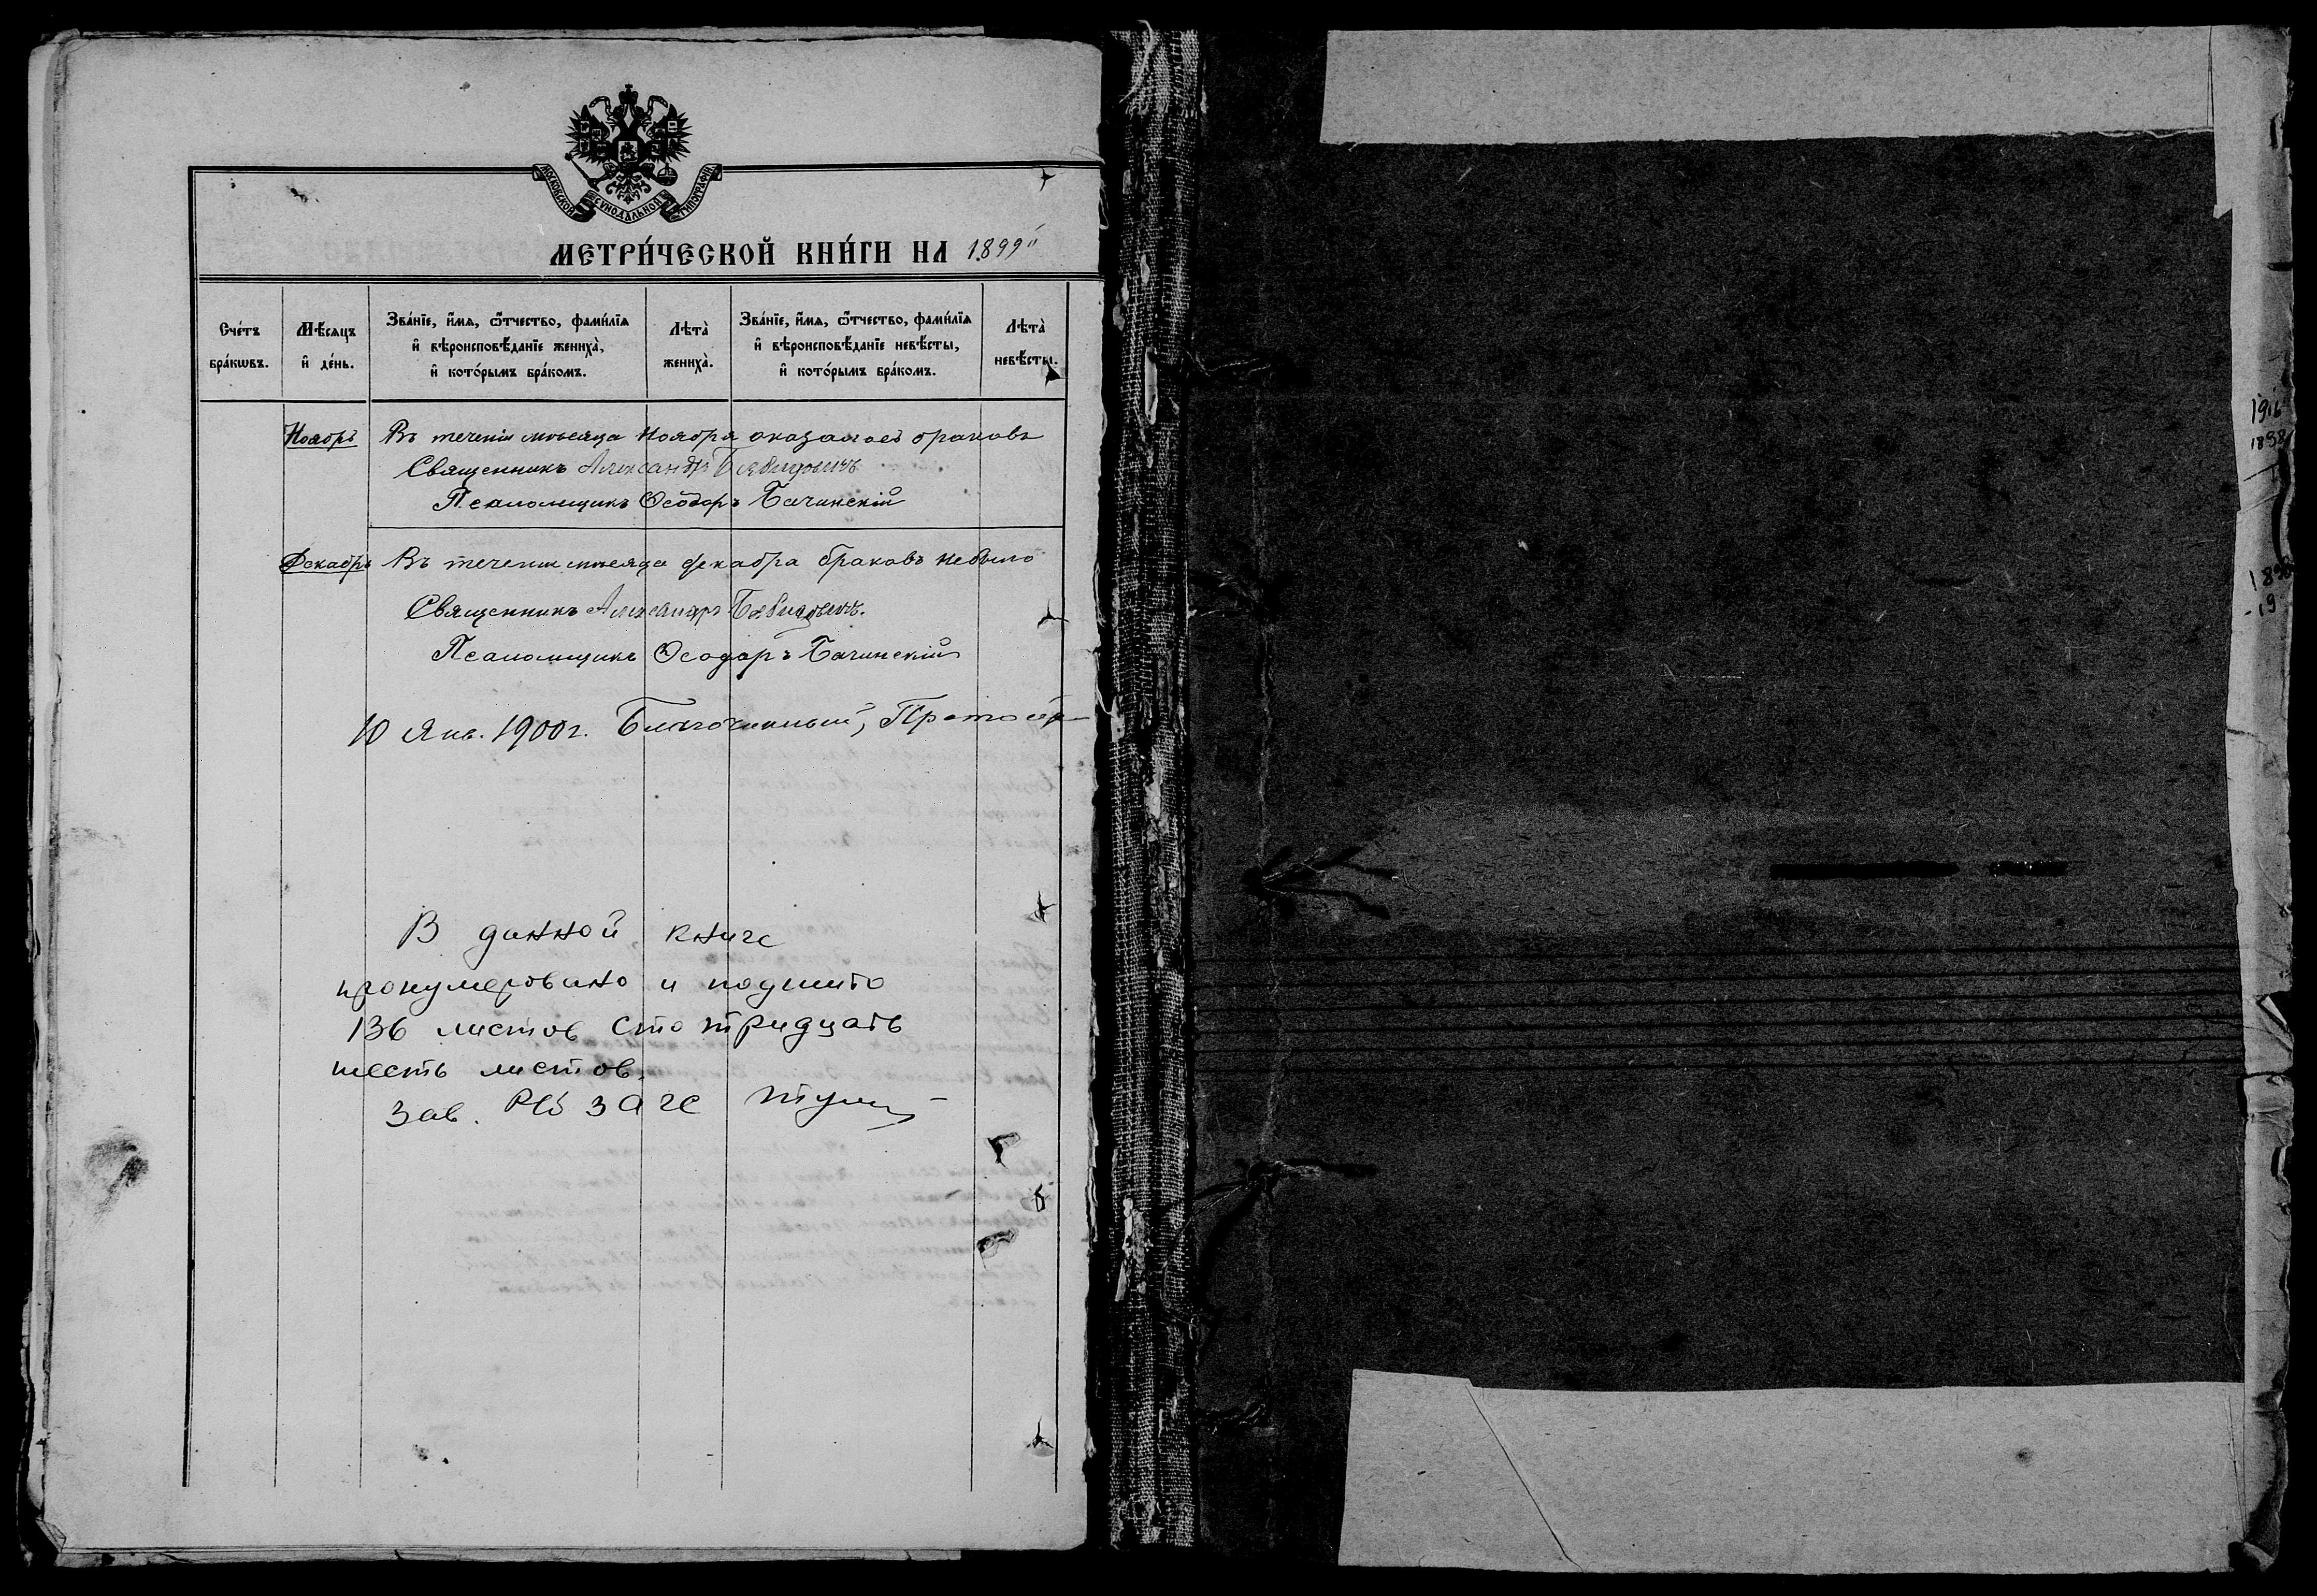 МОСКОВСКОЙ СѴНОДАЛЬНОЙ ТИПОГРАФІИ
МЕТРИ́ЧЕСКОЙ КНИ́ГИ НА 1899
Сче́тъ бра́кѡвъ.
Мѣ́сяцъ и҆ де́нь.
Зва́нїе, и҆́мя, ѻ҆́тчество, фами́лїя и҆ вѣроисповѣ́данїе жениха̀, и҆ кото́рымъ бра́комъ.
Лѣта̀ жениха̀.
Зва́нїе, и҆́мя, ѻ҆́тчество, фами́лїя и҆ вѣроисповѣ́данїе невѣ́сты, и҆ кото́рымъ бра́комъ.
Лѣта̀ невѣ́сты.
Ноябрь Въ теченіи мѣсяца Ноября браковъ
Священникъ Александръ
Псаломщикъ Ѳеодоръ Бачинскій
Декабрь Въ теченіи мѣсяца декабря браковъ небыло
Священникъ Александръ
Псаломщикъ Ѳеодоръ Бачинскій
10 Янв. 1900 г. Благочинный, Протоіер
В данной книге
пронумеровано и подшито
136 листов сто тридцать
шесть листов.
Зав. загс
1916
1898